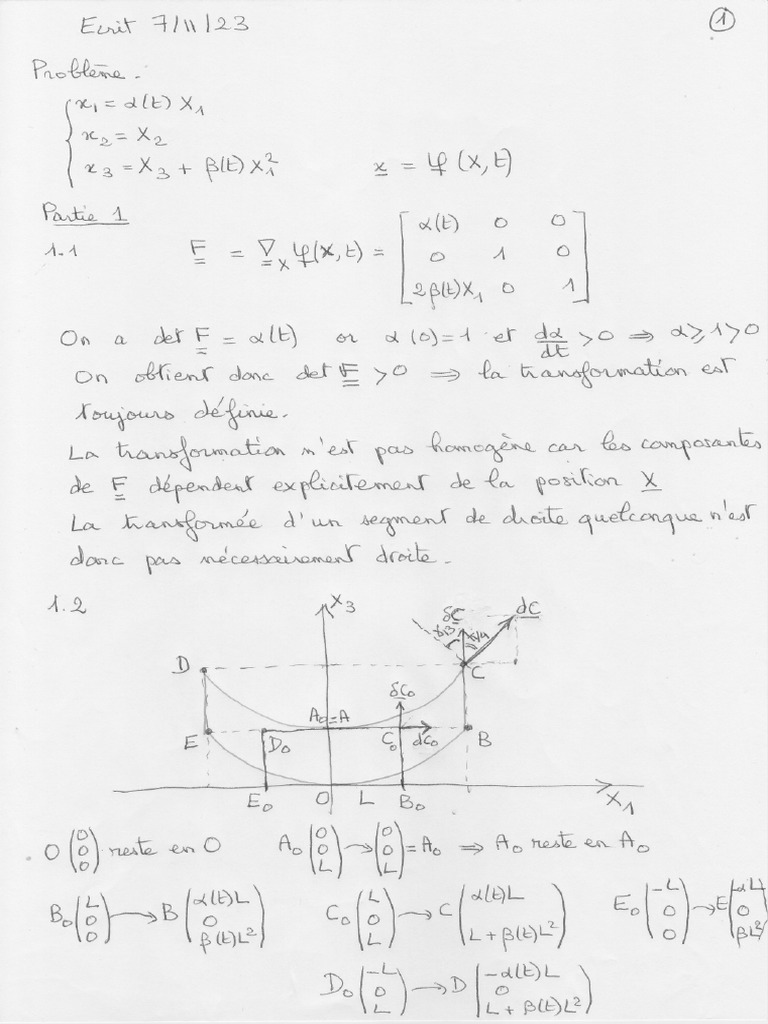 Ecrit 7/11/23
①
Problème.
x₁ = α(t) X₁
x₂ = X₂
x₃ = X₃ + β(t) X₁²    x = φ (X, t)
Partie 1
1.1    F = ∇_X φ(X, t) = [ α(t) 0 0
0 1 0
2β(t)X₁ 0 1 ]
On a det F = α(t) or α(0)=1 et dα/dt > 0 ⇒ α ⩾ 1 > 0
On obtient donc det F > 0 ⇒ la transformation est
toujours définie.
La transformation n'est pas homogène car les composantes
de F dépendent explicitement de la position X
La transformée d'un segment de droite quelconque n'est
donc pas nécessairement droite.
1.2
X₃
δC
dC
γ₁₃
π/4
D
C
δC₀
A₀=A
E
D₀
C₀
dC₀
B
E₀
O
L
B₀
X₁
O (0 0 0) reste en O    A₀ (0 0 L) → (0 0 L) = A₀ ⇒ A₀ reste en A₀
B₀ (L 0 0) → B (α(t)L 0 β(t)L²)    C₀ (L 0 L) → C (α(t)L L+β(t)L²)    E₀ (-L 0 0) → E (-αL 0 βL²)
D₀ (-L 0 L) → D (-α(t)L 0 L+β(t)L²)